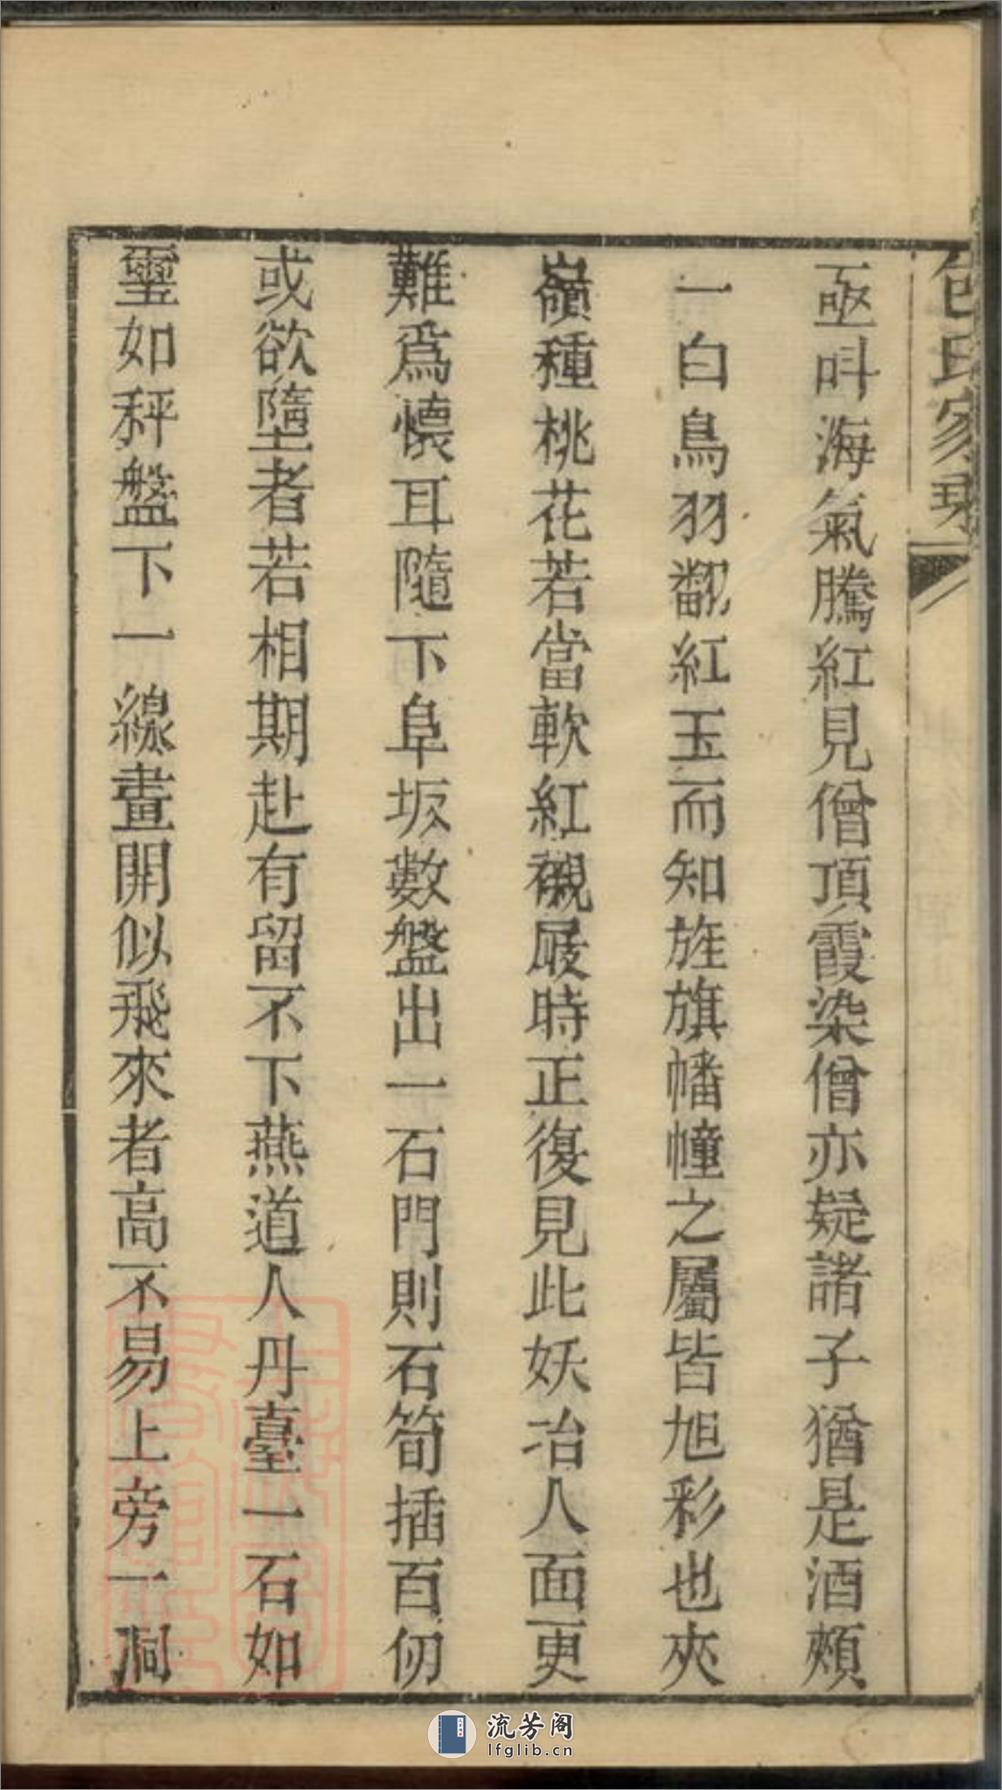 包氏家
亟叫海氣騰紅見僧頂霞染僧亦疑諸子猶是酒頰
一白鳥羽翻紅玉而知旌旗幡幢之屬皆旭彩也夾
嶺種桃花若當軟紅襯屐時正復見此妖冶人面更
難爲懷耳隨下阜坂數盤出一石門則石筍插百仞
或欲墮者若相期赴有留不下燕道人丹臺一石如
璽如秤盤下一線畫開似飛來者高不易上旁一洞
流芳阁
lfglib.cn